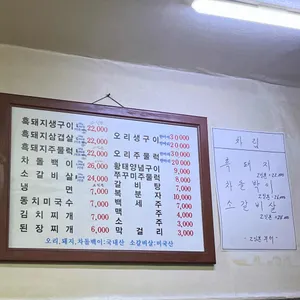 흑돼지생구이 22,000
흑돼지삼겹살 22,000
흑돼지주물럭 22,000
차돌박이 26,000
소갈비살 24,000
냉면 7,000
동치미국수 7,000
김치찌개 7,000
된장찌개 6,000
오리생구이 30,000
20,000
오리주물럭 30,000
20,000
황태양념구이 9,000
쭈꾸미주물럭 9,000
갈비탕 7,000
복분자 10,000
백세주 7,000
맥주 3,000
소주 3,000
막걸리 3,000
오리,돼지,차돌백이:국내산 소갈비살:미국산
차림
흑돼지
차돌박이
소갈비살